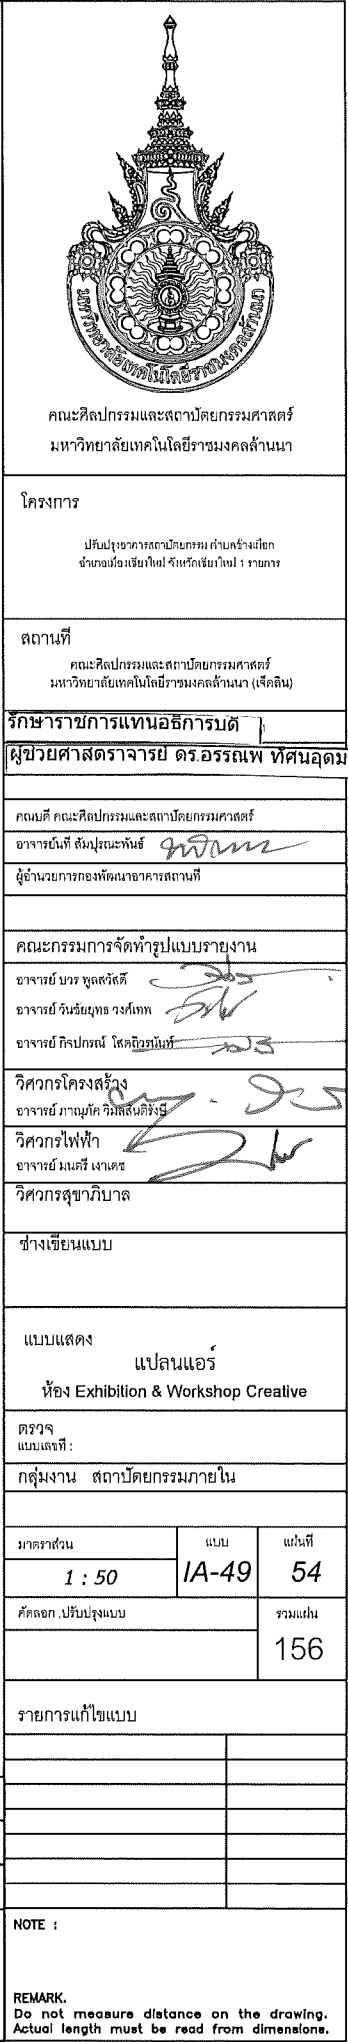 มหาวิทยาลัยเทคโนโลยีราชมงคลล้านนา
คณะศิลปกรรมและสถาปัตยกรรมศาสตร์
มหาวิทยาลัยเทคโนโลยีราชมงคลล้านนา
โครงการ
ปรับปรุงอาคารสถาปัตยกรรม ตำบลช้างเผือก
อำเภอเมืองเชียงใหม่ จังหวัดเชียงใหม่ 1 รายการ
สถานที่
คณะศิลปกรรมและสถาปัตยกรรมศาสตร์
มหาวิทยาลัยเทคโนโลยีราชมงคลล้านนา (เจ็ดลิน)
รักษาราชการแทนอธิการบดี
ผู้ช่วยศาสตราจารย์ ดร.อรรณพ ทัศนอุดม
คณบดี คณะศิลปกรรมและสถาปัตยกรรมศาสตร์
อาจารย์นที สัมปุรณะพันธ์
ผู้อำนวยการกองพัฒนาอาคารสถานที่
คณะกรรมการจัดทำรูปแบบรายงาน
อาจารย์ บวร พูลสวัสดิ์
อาจารย์ วันชัยยุทธ วงศ์เทพ
อาจารย์ กิจปกรณ์ โสตถิวรนันท์
วิศวกรโครงสร้าง
อาจารย์ ภาณุภัค วิมลสันติรังษี
วิศวกรไฟฟ้า
อาจารย์ มนตรี เงาเดช
วิศวกรสุขาภิบาล
ช่างเขียนแบบ
แบบแสดง
แปลนแอร์
ห้อง Exhibition & Workshop Creative
ตรวจ
แบบเลขที่ :
กลุ่มงาน สถาปัตยกรรมภายใน
มาตราส่วน แบบ แผ่นที่
1 : 50 IA-49 54
คัดลอก ,ปรับปรุงแบบ รวมแผ่น
156
รายการแก้ไขแบบ
NOTE :
REMARK.
Do not measure distance on the drawing.
Actual length must be read from dimensions.